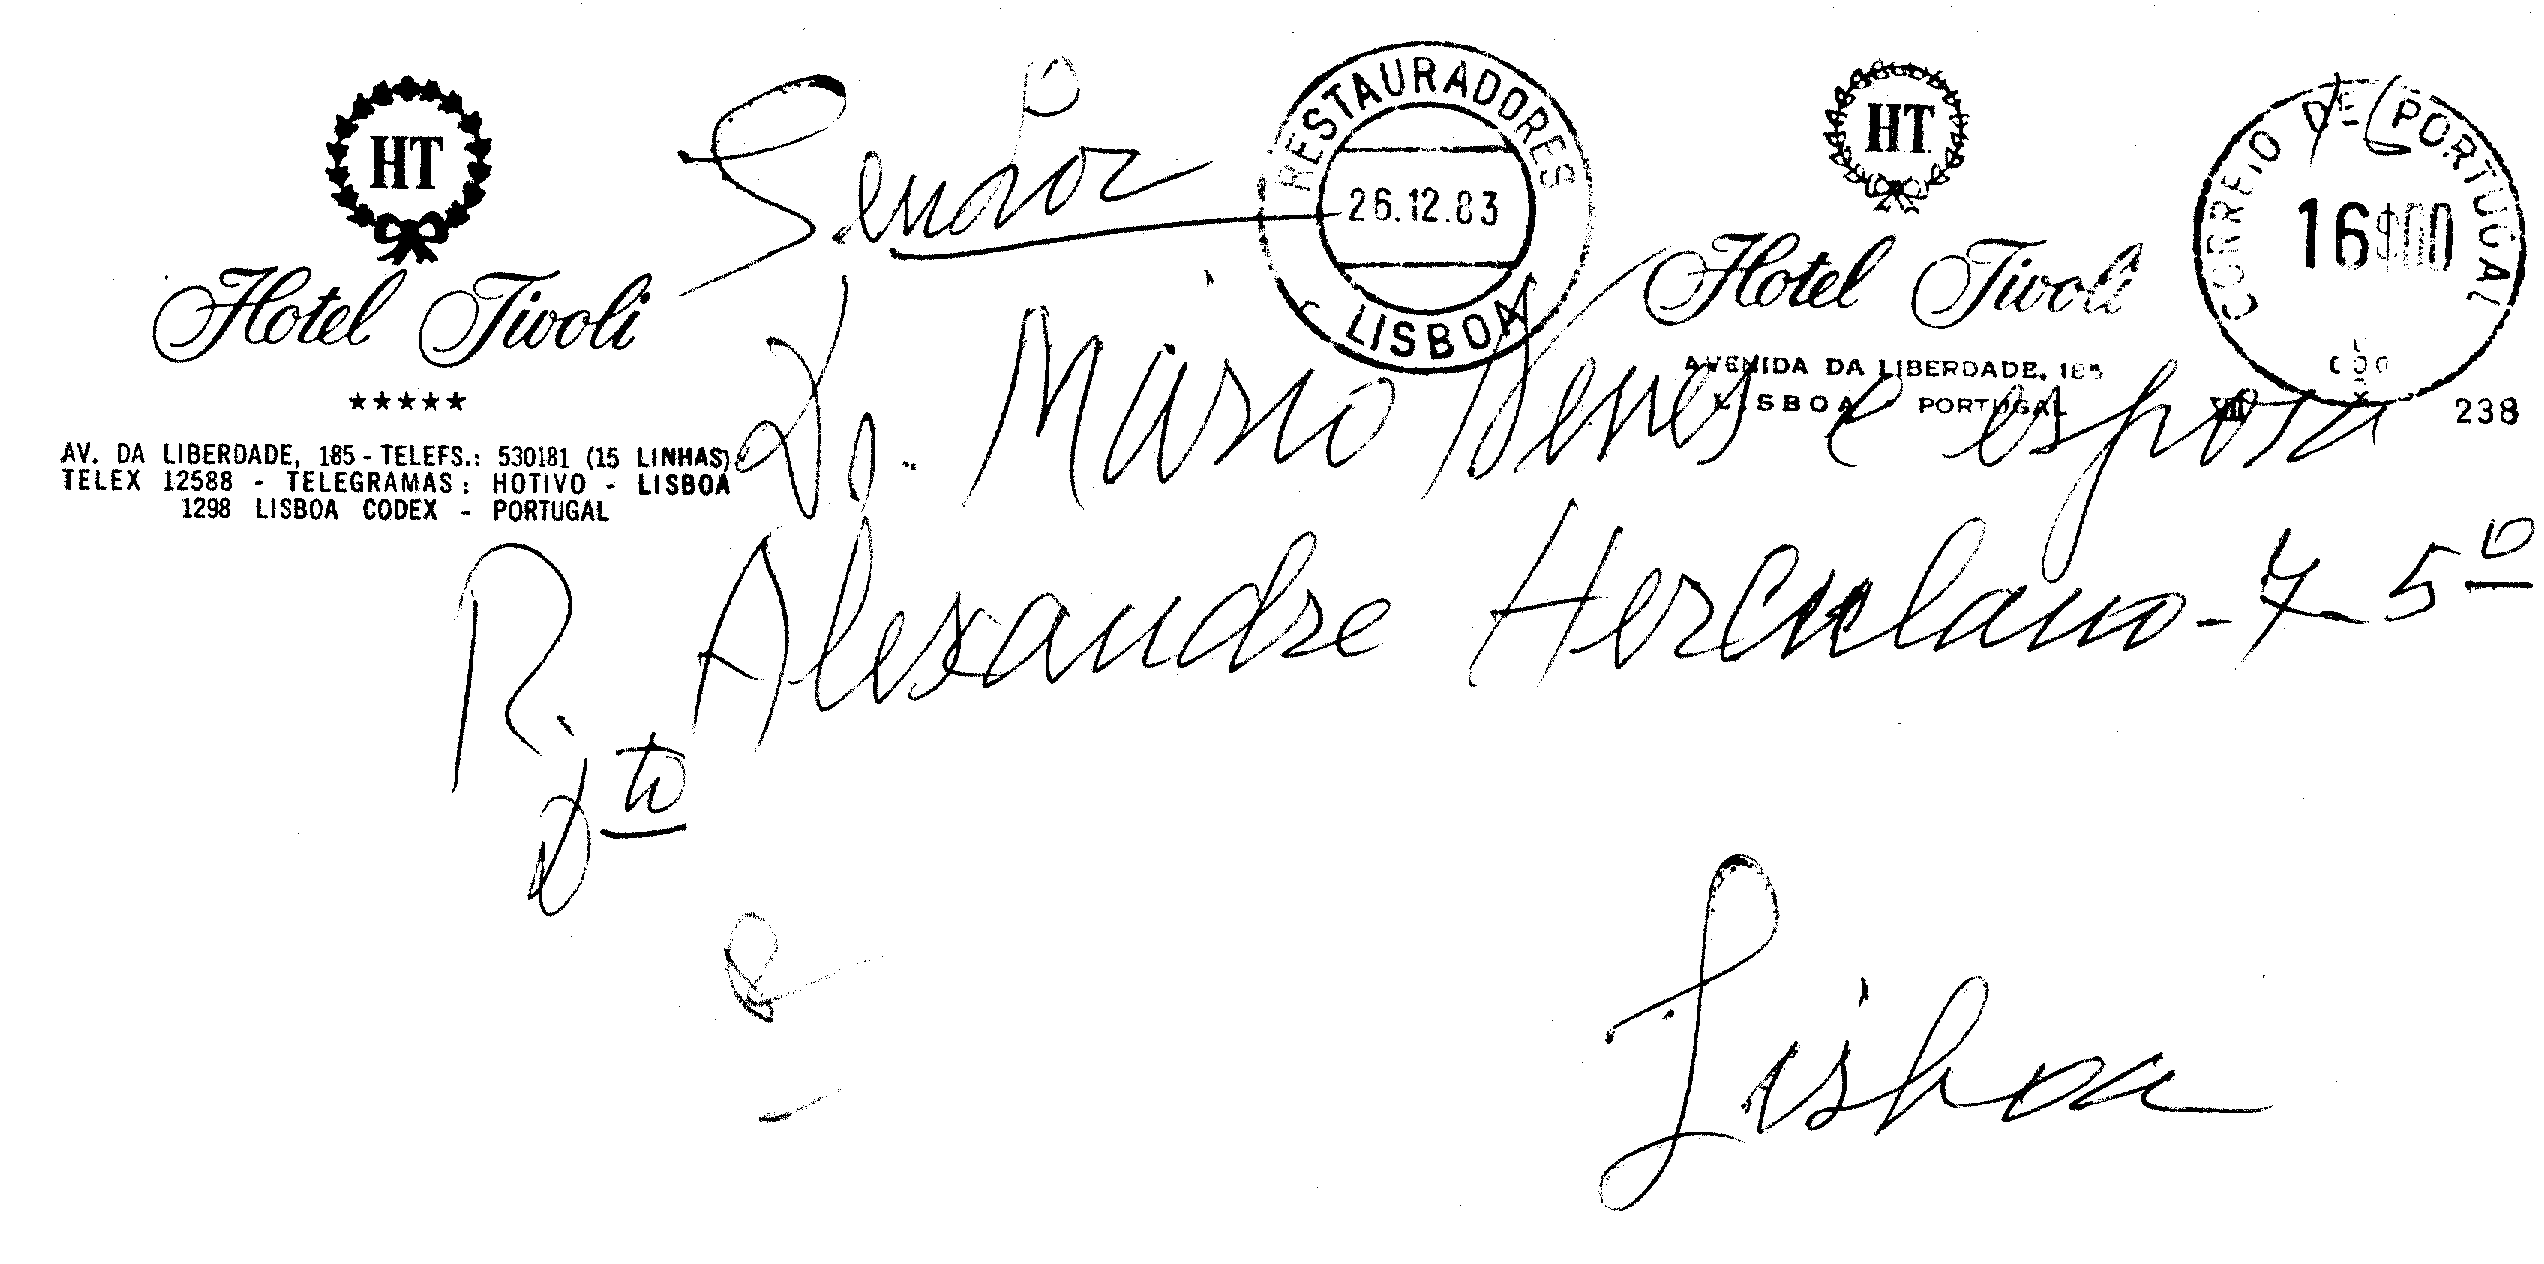 HT
Hotel Tivoli
★★★★★
AV. DA LIBERDADE, 185 - TELEFS.: 530181 (15 LINHAS)
TELEX 12588 - TELEGRAMAS: HOTIVO - LISBOA
1298 LISBOA CODEX - PORTUGAL
RESTAURADORES
26.12.83
LISBOA
HT
Hotel Tivoli
AVENIDA DA LIBERDADE, 185
LISBOA PORTUGAL
CORREIO DE PORTUGAL
16$00
238
Senhor
Dr. Mário Neves e esposa
R. Alexandre Herculano - 7 5º
Dto
Lisboa